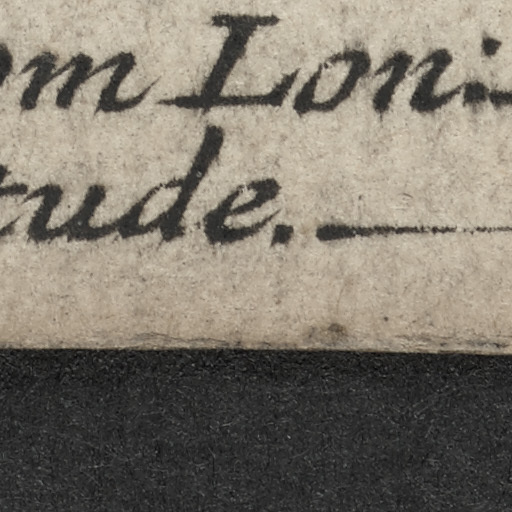 om Loni
tude.